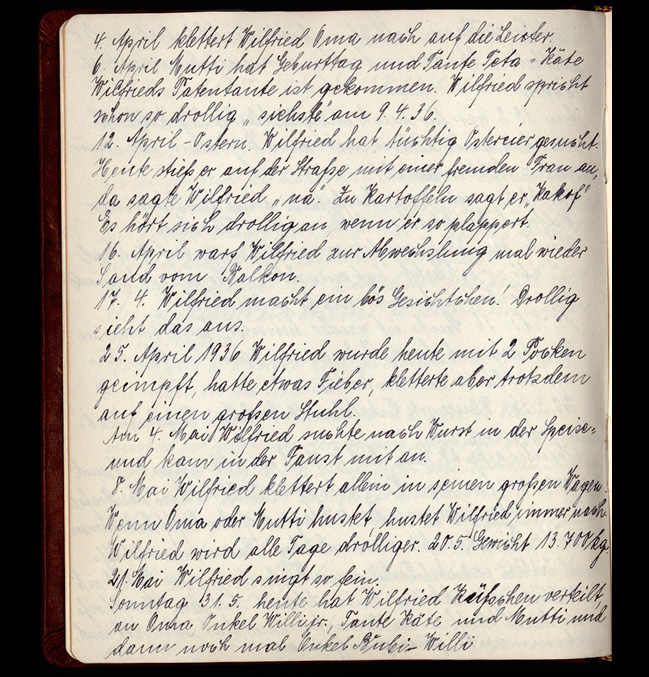 4. April klettert Wilfried Oma nach auf die Leiter.
6. April Mutti hat Geburttag und Tante Teta = Käte
Wilfrieds Patentante ist gekommen. Wilfried spricht
schon so drollig „siehste" am 9.4.36.
12. April - Ostern. Wilfried hat tüchtig Ostereier gesucht.
Heute stieß er auf der Straße mit einer fremden Frau an,
da sagte Wilfried „na". Zu Kartoffeln sagt er „Kakof"
Es hört sich drollig an, wenn er so plappert.
16. April warf Wilfried zur Abwechslung mal wieder
Sand vom Balkon.
17. 4. Wilfried macht ein bös Gesichtchen! Drollig
sieht das aus.
25. April 1936 Wilfried wurde heute mit 2 Pocken
geimpft, hatte etwas Fieber, kletterte aber trotzdem
auf einen großen Stuhl.
Am 4. Mai Wilfried suchte nach Wurst in der Speise=
und kam in der Faust mit an.
8. Mai Wilfried klettert allein in seinen großen Wagen.
Wenn Oma oder Mutti hustet, hustet Wilfried immer nach.
Wilfried wird alle Tage drolliger. 20.5. Gewicht 13.700 kg
21. Mai Wilfried singt so fein.
Sonntag 31.5. heute hat Wilfried Küßchen verteilt,
an Oma, Onkel Willi jr., Tante Käte und Mutti und
dann noch mal Onkel Willi